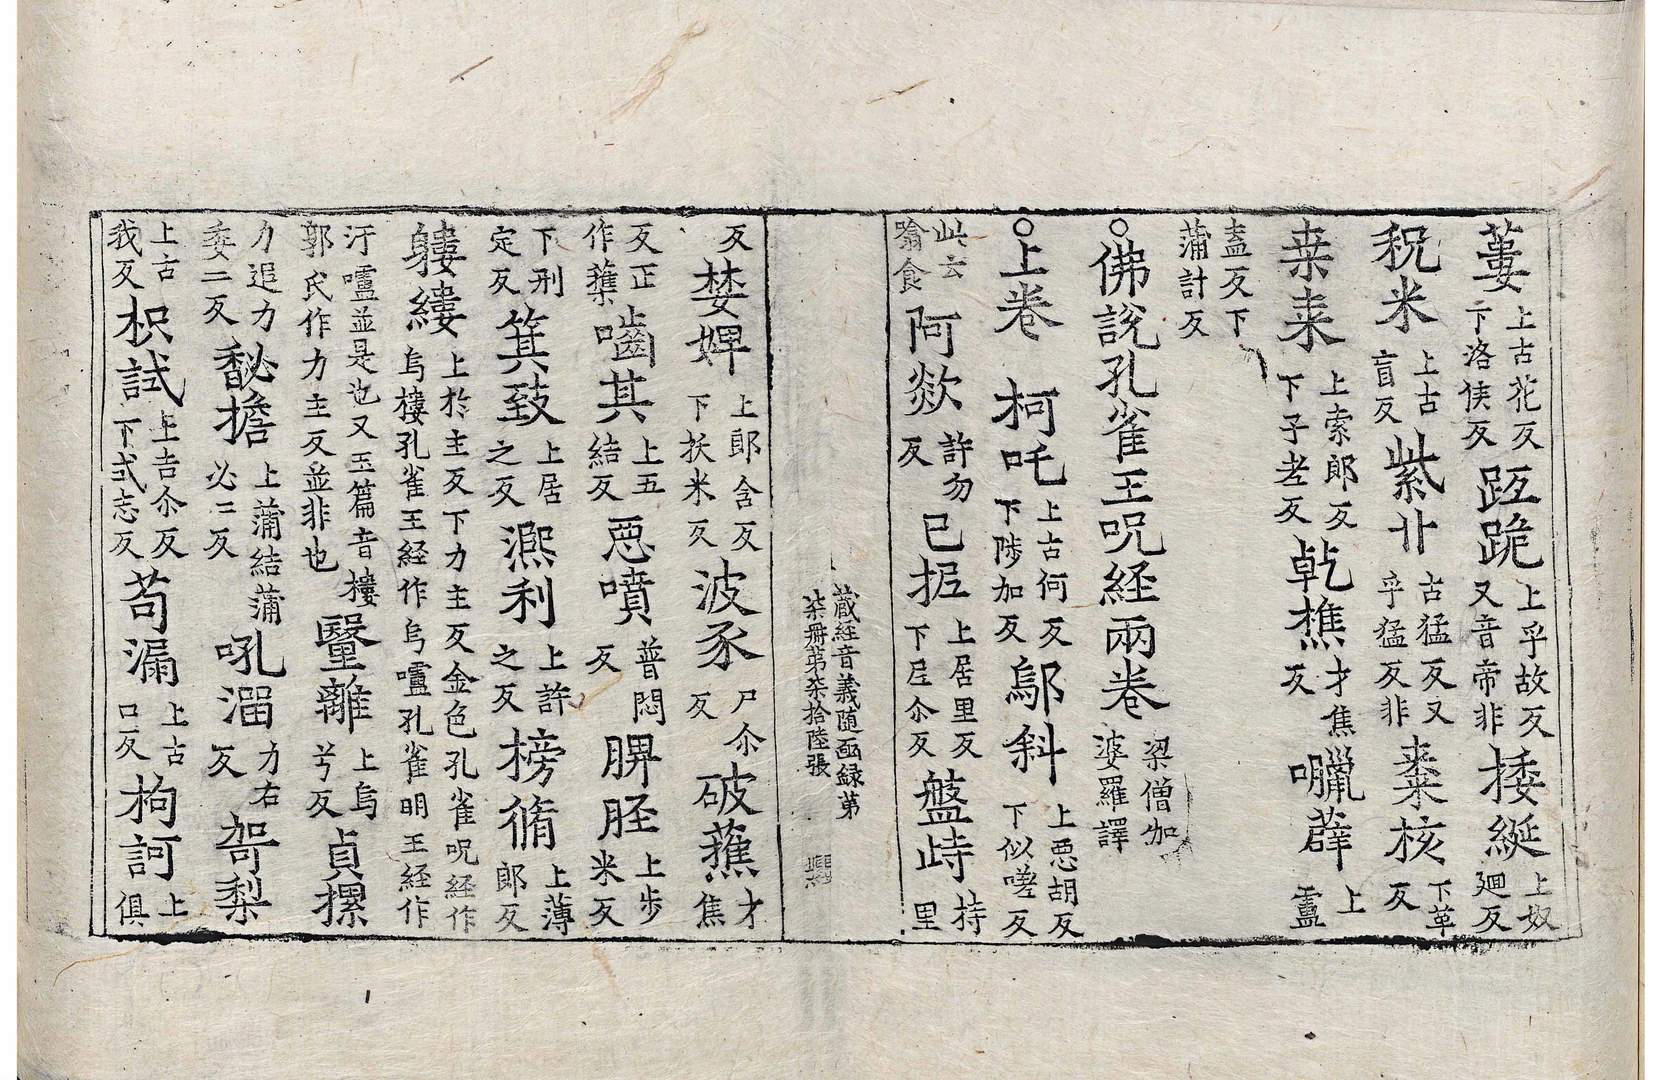 蔞上古花反下洛侯反跖跪上乎故反又音帝非捼綖上奴廻反
祝米上古盲反紫卝古猛反又乎猛反非棗核下革反
桒耒上索郎反下子孝反乹樵才焦反囒薜上盧
盍反下蒲計反
○佛說孔雀王呪経兩卷梁僧伽婆羅譯
○上卷 柯吒上古何反下陟加反鄔斜上悪胡反下似嗟反
此云噏食阿欻許勿反已抳上居里反下𡰱尒反盤峙持里
藏経音義随凾録第柒冊第柒拾陸張
反婪婢上郎含反下扶米反波豕尸尒反破蕉才焦
反正作蕉嚙其上五結反悪噴普悶反脾胵上步米反
下刑定反箕致上居之反凞利上許之反榜脩上薄郎反
軁縷上於主反下力主反金色孔雀呪経作烏樓孔雀王経作烏嚧孔雀明王経作
汙嚧並是也又玉篇音樓郭氏作力主反並非也毉離上烏兮反貞摞
力追力委二反馝擔上蒲結蒲必二反吼溜力右反哿梨
上古我反枳試上吉尒反下式志反苟漏上古口反枸訶上俱